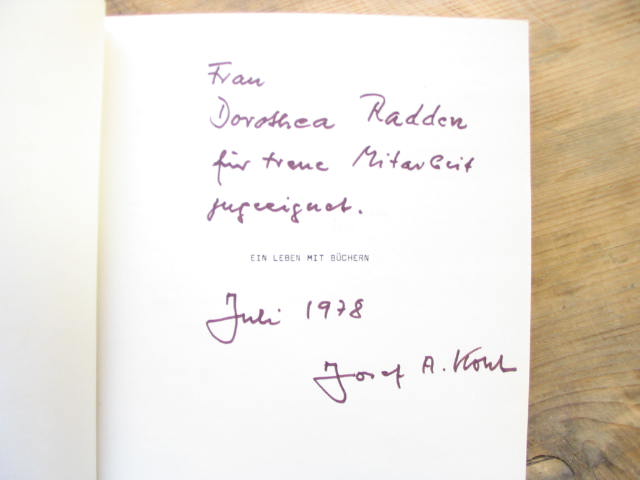 Frau
Dorothea Radden
für treue Mitarbeit
zugeeignet.
EIN LEBEN MIT BÜCHERN
Juli 1978
Josef A. Kohl